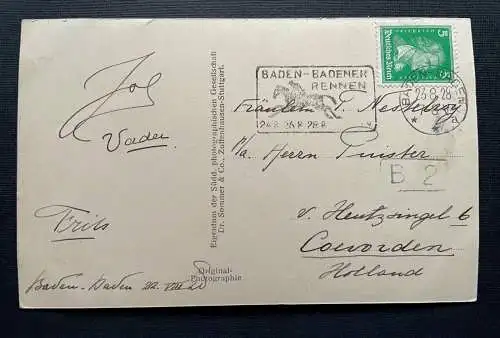 Jos
Vader
Frits
Baden-Baden 22 VIII 28
Eigentum der Südd. photographischen Gesellschaft
Dr. Sommer & Co., Zuffenhausen-Stuttgart.
Original-
Photographie
BADEN-BADENER
RENNEN
24.8. 26.8. 28.8.
Deutsches Reich
5
BADEN
23.8.28
Fräulein T.
p/a. Herrn Puister
B 2
v. Heutzsingel 6
Coevorden
Holland